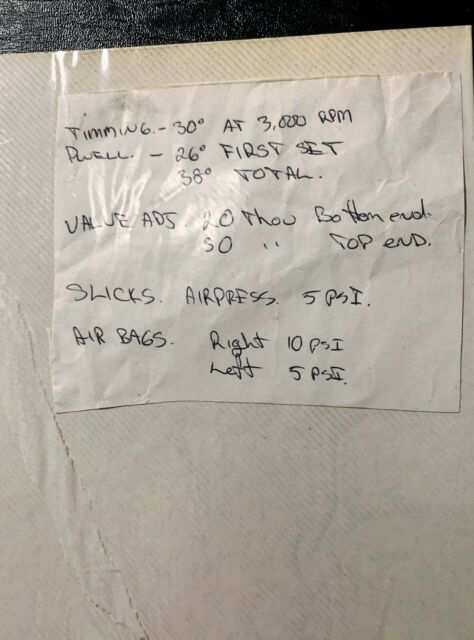 TIMMING. - 30° AT 3,000 RPM
DWELL. - 26° FIRST SET
38° TOTAL.
VALVE ADJ. 20 Thou Bottom end.
30 " TOP END.
SLICKS. AIRPRESS. 5 PSI.
AIR BAGS. Right 10 PSI
Left 5 PSI.